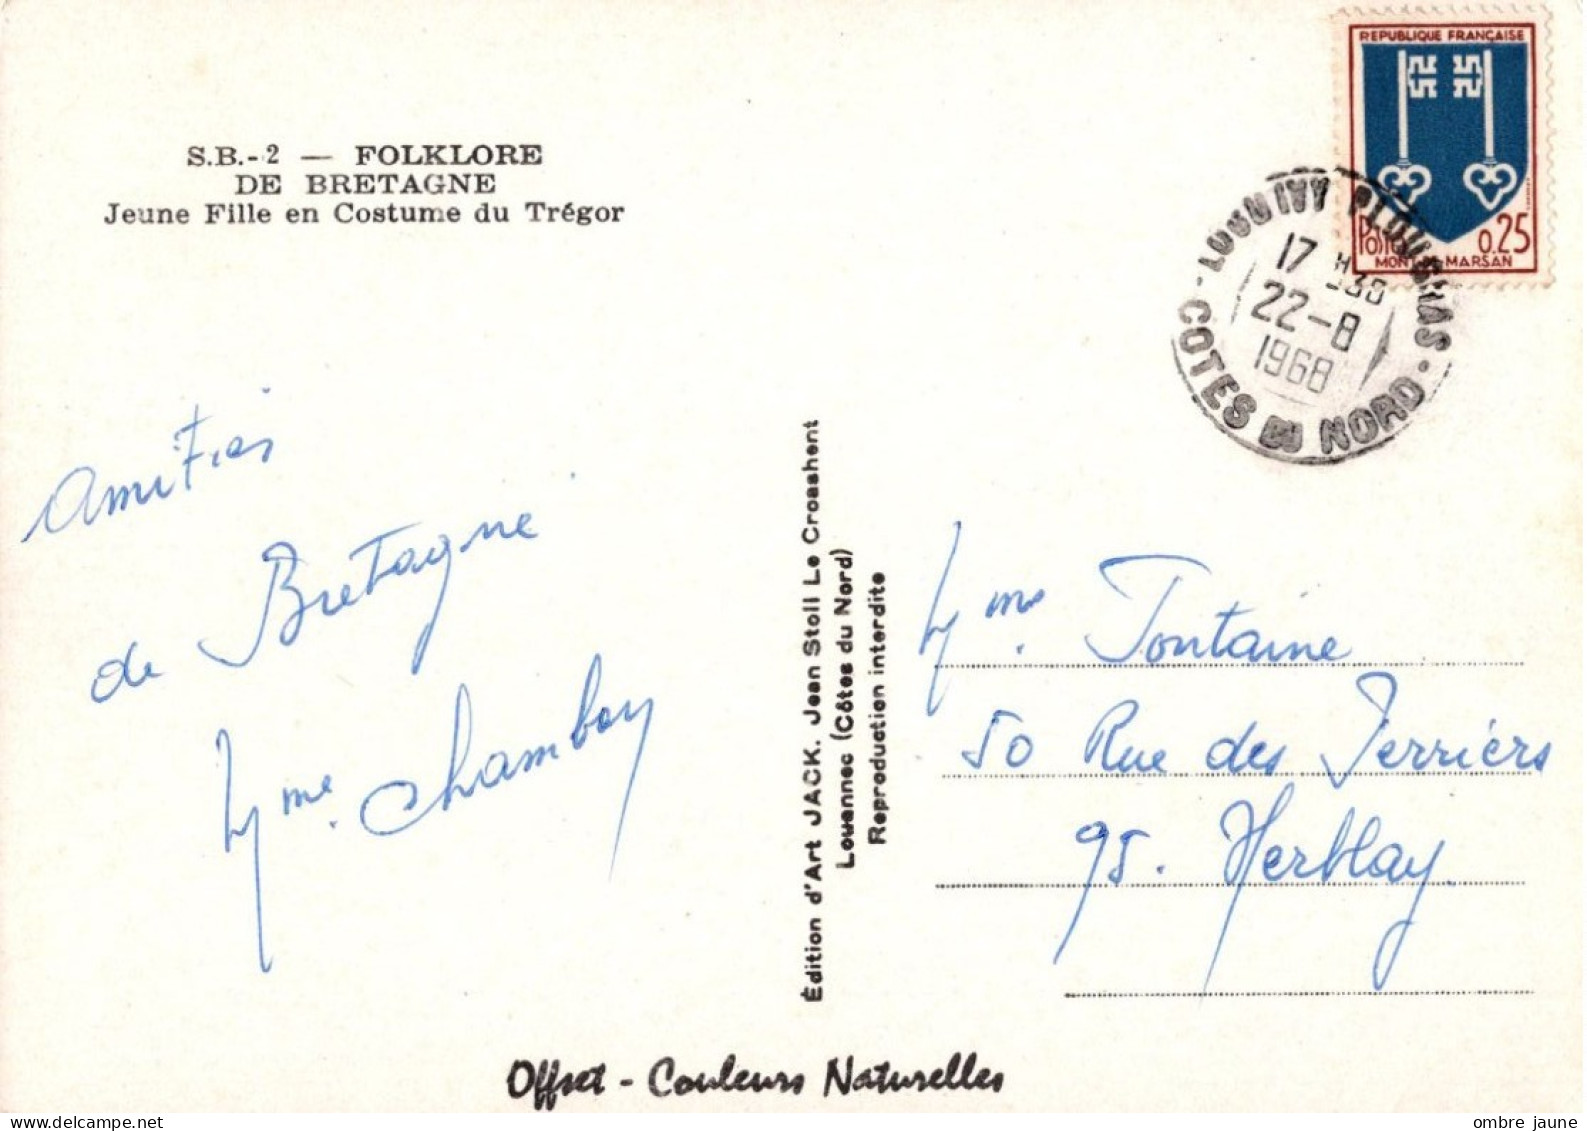 S.B.-2 — FOLKLORE
DE BRETAGNE
Jeune Fille en Costume du Trégor
REPUBLIQUE FRANÇAISE
POSTES 0.25
MONT-DE-MARSAN
LOUNIVY PLOUGRAS
17 H30
22-8
1968
COTES DU NORD
Amitiés
de Bretagne
Mme. Chambon
Édition d'Art JACK. Jean Stoll Le Croashent
Louannec (Côtes du Nord)
Reproduction interdite
Mme. Fontaine
50 Rue des Terriers
95. Herblay
Offset - Couleurs Naturelles
ombre jaune